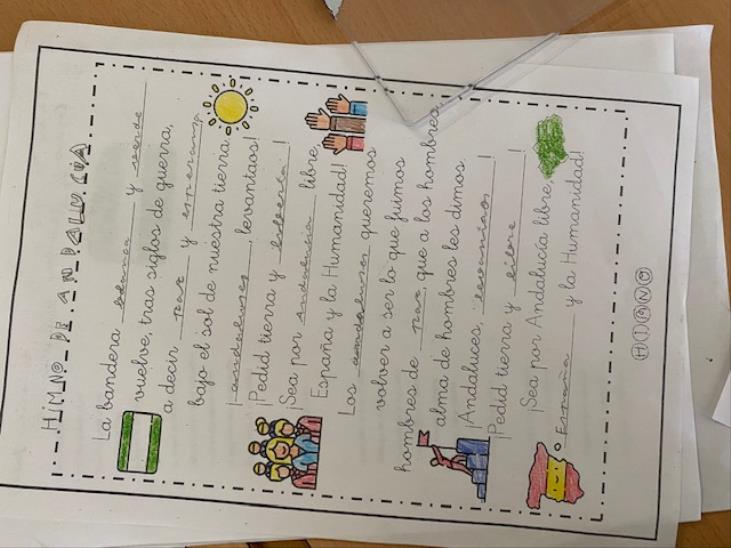 HIMNO DE ANDALUCÍA
La bandera blanca y verde
vuelve, tras siglos de guerra,
a decir paz y esperanza
bajo el sol de nuestra tierra.
¡andaluces, levantaos!
¡Pedid tierra y !
¡Sea por Andalucía libre,
España y la Humanidad!
Los andaluces queremos
volver a ser lo que fuimos
hombres de paz, que a los hombres,
alma de hombres les dimos.
¡Andaluces, !
¡Pedid tierra y !
¡Sea por Andalucía libre,
España y la Humanidad!
HIMNO